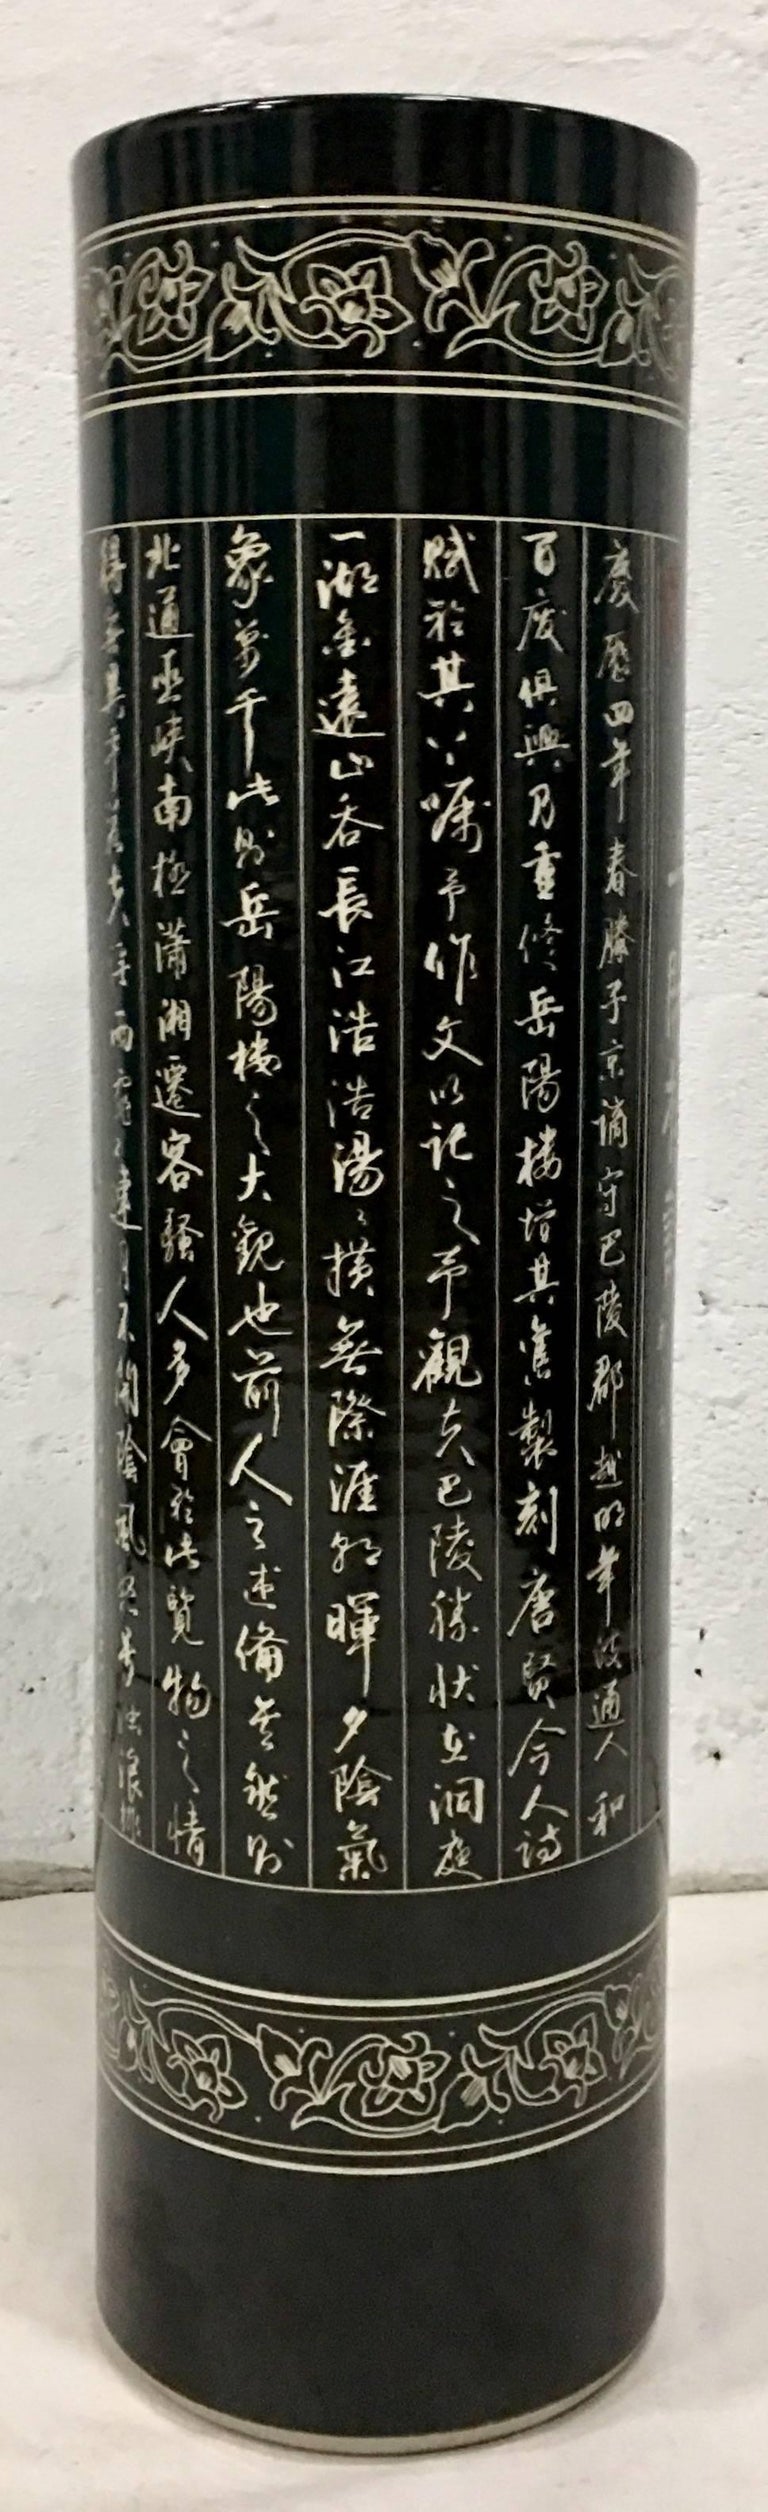 慶歷四年春滕子京謫守巴陵郡越明年政通人和
百废俱興乃重修岳陽楼增其舊製刻唐賢今人詩
賦於其上嘱予作文以記之予觀夫巴陵勝状在洞庭
一湖銜遠山吞長江浩浩湯々横無際涯朝暉夕陰氣
象萬千此則岳陽楼之大觀也前人之述備矣然則
北通巫峡南極瀟湘遷客騷人多會於此覽物之情
得無異乎若夫雨霏々連月不開陰風怒号浊浪排